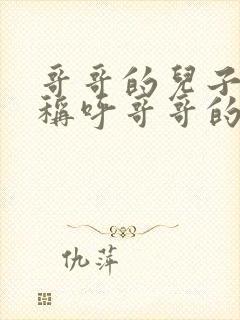 哥哥的兒子
稱呼哥哥的
仇萍